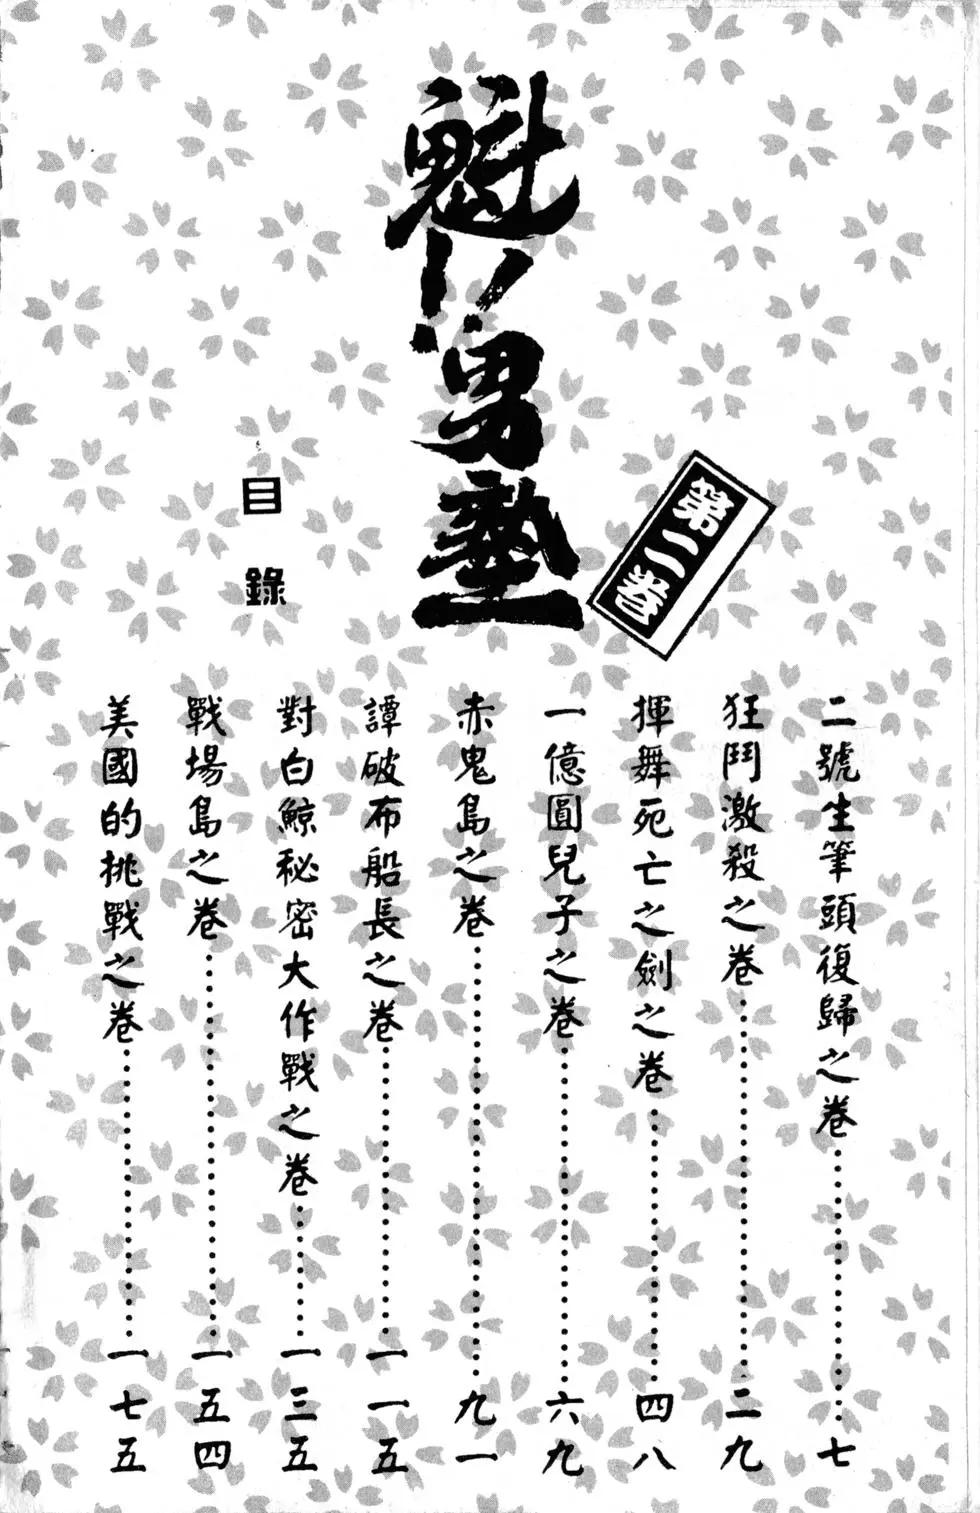 魁!!男塾
第二卷
目錄
二號生筆頭復歸之卷……七
狂鬥激殺之卷……二九
揮舞死亡之劍之卷……四八
一億圓兒子之卷……六九
赤鬼島之卷……九一
譚破布船長之卷……一一五
對白鯨秘密大作戰之卷……一三五
戰場島之卷……一五四
美國的挑戰之卷……一七五